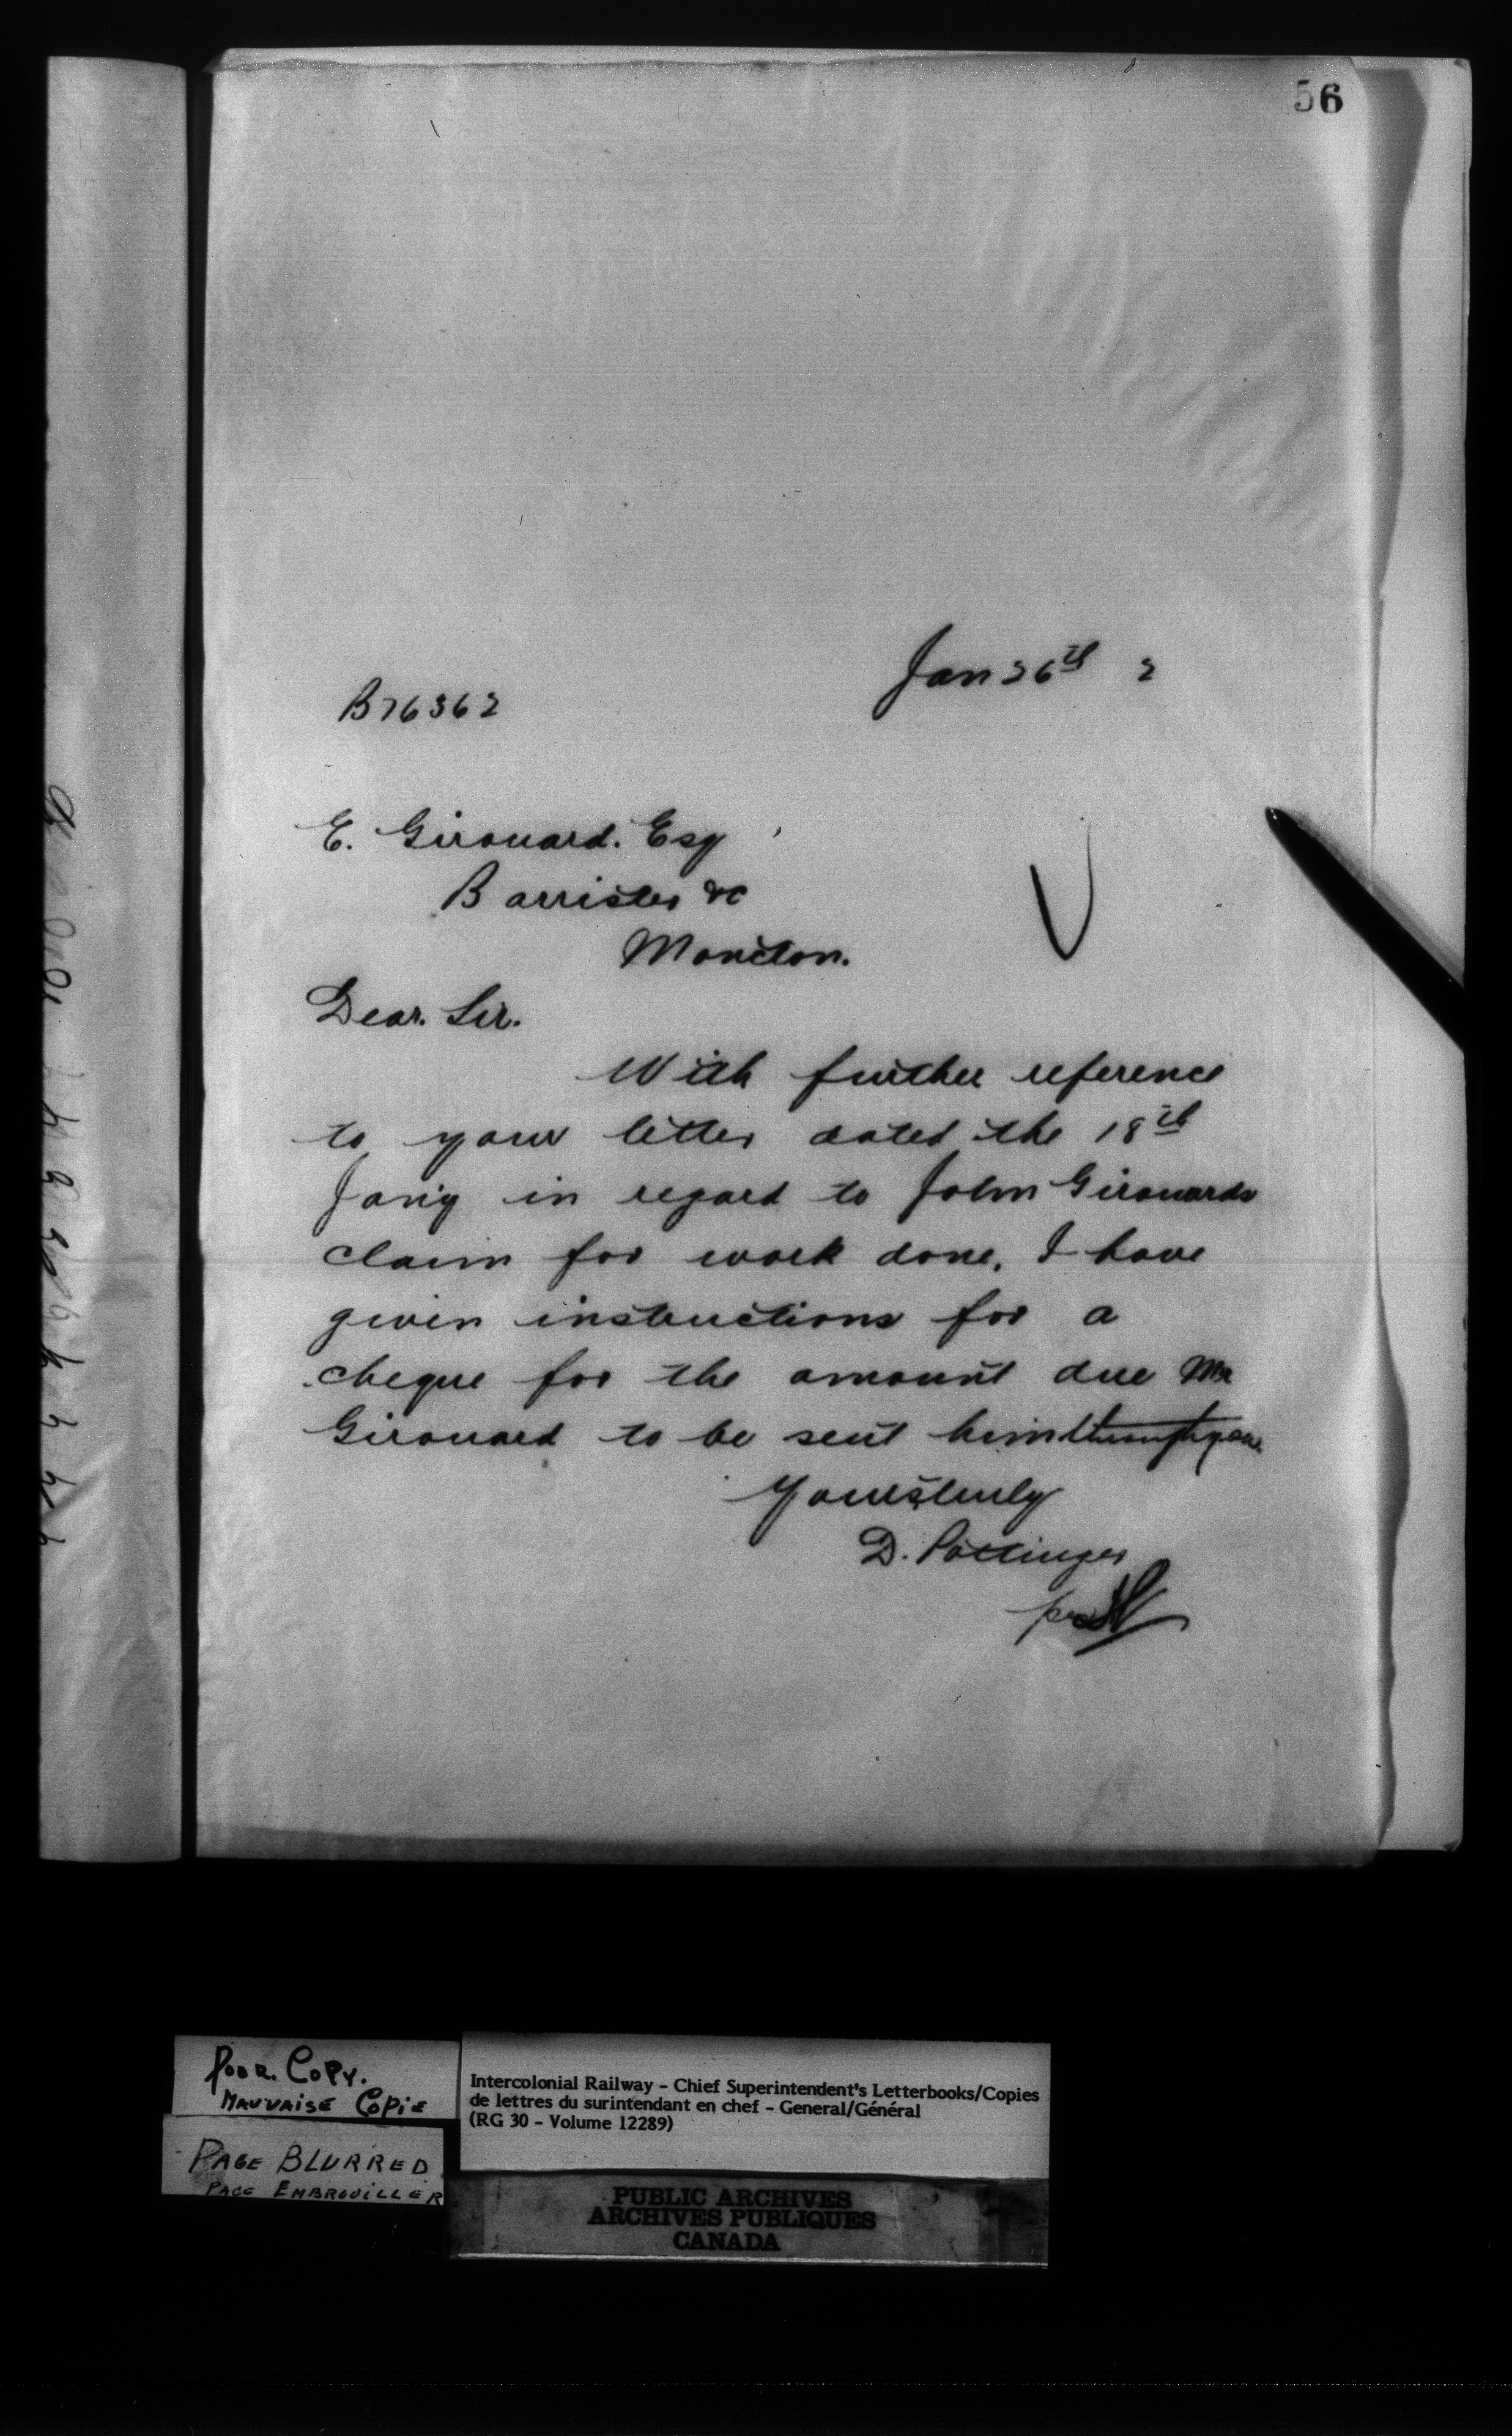 56
Jan 26th 2
B76362
E. Girouard. Esq
Barrister &c
Moncton.
Dear. Sir.
With further reference
to your letter dated the 18th
Jan'y in regard to John Girouards
claim for work done, I have
given instructions for a
cheque for the amount due Mr
Girouard to be sent him through you.
Yours truly
D. Pottinger
per
Poor. Copy.
Mauvaise Copie
Page Blurred
Page Embrouiller
Intercolonial Railway - Chief Superintendent's Letterbooks/Copies
de lettres du surintendant en chef - General/Général
(RG 30 - Volume 12289)
PUBLIC ARCHIVES
ARCHIVES PUBLIQUES
CANADA